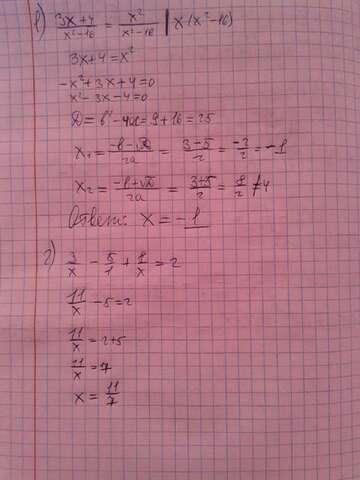 1) (3x+4)/(x²-16) = x²/(x²-16) | x(x²-16)
3x+4=x²
-x²+3x+4=0
x²-3x-4=0
D=b²-4ac=9+16=25
x₁=(-b-√D)/2a = (3-5)/2 = -2/2 = -1
x₂=(-b+√D)/2a = (3+5)/2 = 8/2 ≠4
Ответ: x=-1
2) 3/x - 5/1 + 8/x = 2
11/x -5=2
11/x = 2+5
11/x = 7
x = 11/7